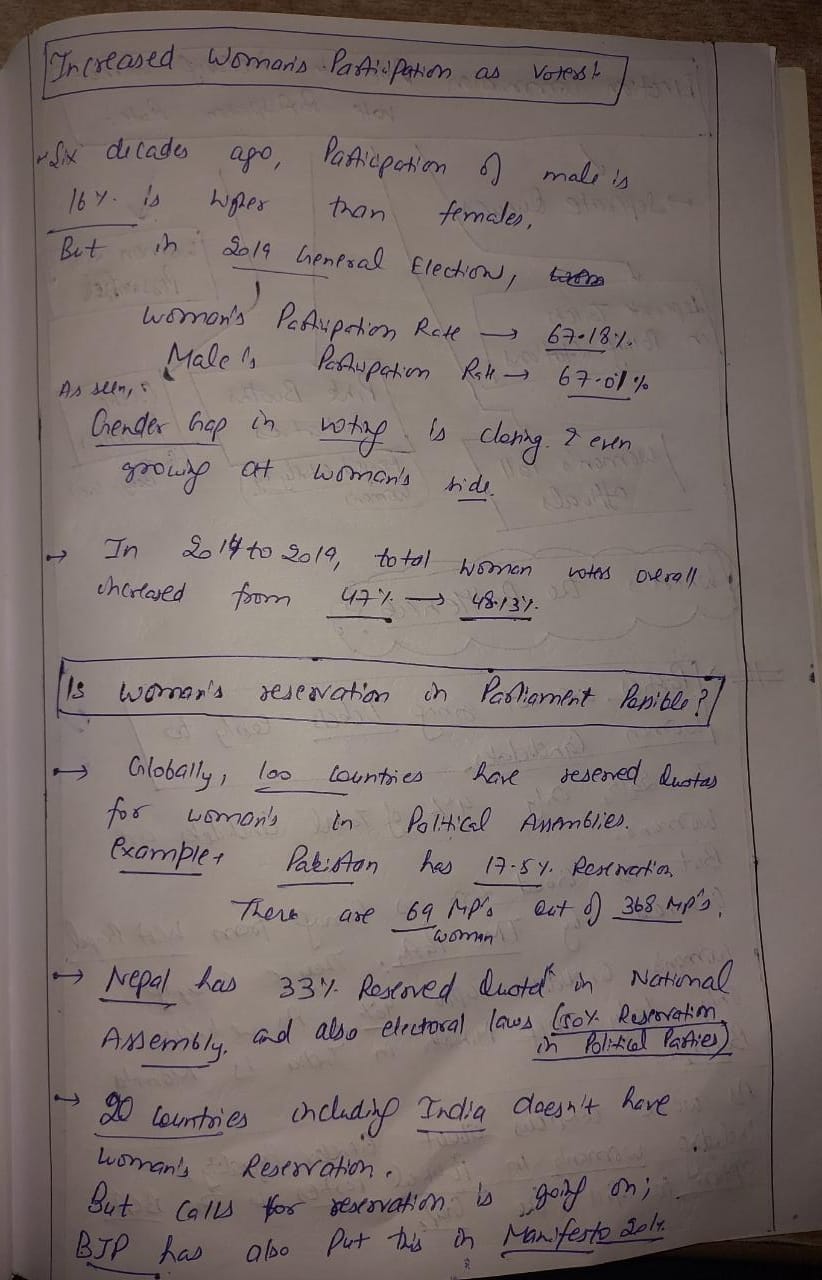 Increased Woman's Participation as Voters:
Six decades ago, Participation of male is
16% is higher than females.
But in 2019 General Election,
Woman's Participation Rate → 67.18%
Male's Participation Rate → 67.01%
As seen,:
Gender Gap in voting is closing & even
growing at woman's side.
→ In 2014 to 2019, total woman voters overall
increased from 47% → 48.13%.
Is woman's reservation in Parliament Possible?
→ Globally, 100 countries have reserved Quotas
for woman's in Political Assemblies.
Example: Pakistan has 17.5% Reservation
There are 69 MP's out of 368 MP's.
woman
→ Nepal has 33% Reserved Quota in National
Assembly. and also electoral laws (50% Reservation
in Political Parties)
→ 20 Countries including India doesn't have
Woman's Reservation.
But calls for reservation is going on;
BJP has also Put this in Manifesto 2014.